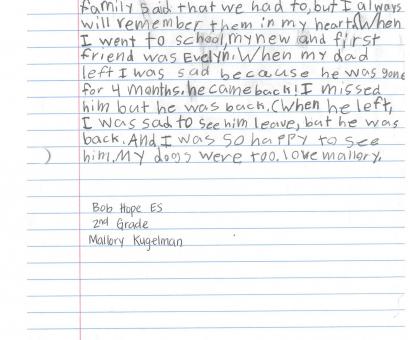 family said that we had to, but I always
will remember them in my heart. When
I went to school, my new and first
friend was Evelyn. When my dad
left I was sad because he was gone
for 4 months. he came back! I missed
him but he was back. (When he left,
I was sad to see him leave, but he was
back. And I was so happy to see
) him. My dogs were too. love mallory.
Bob Hope ES
2nd Grade
Mallory Kugelman